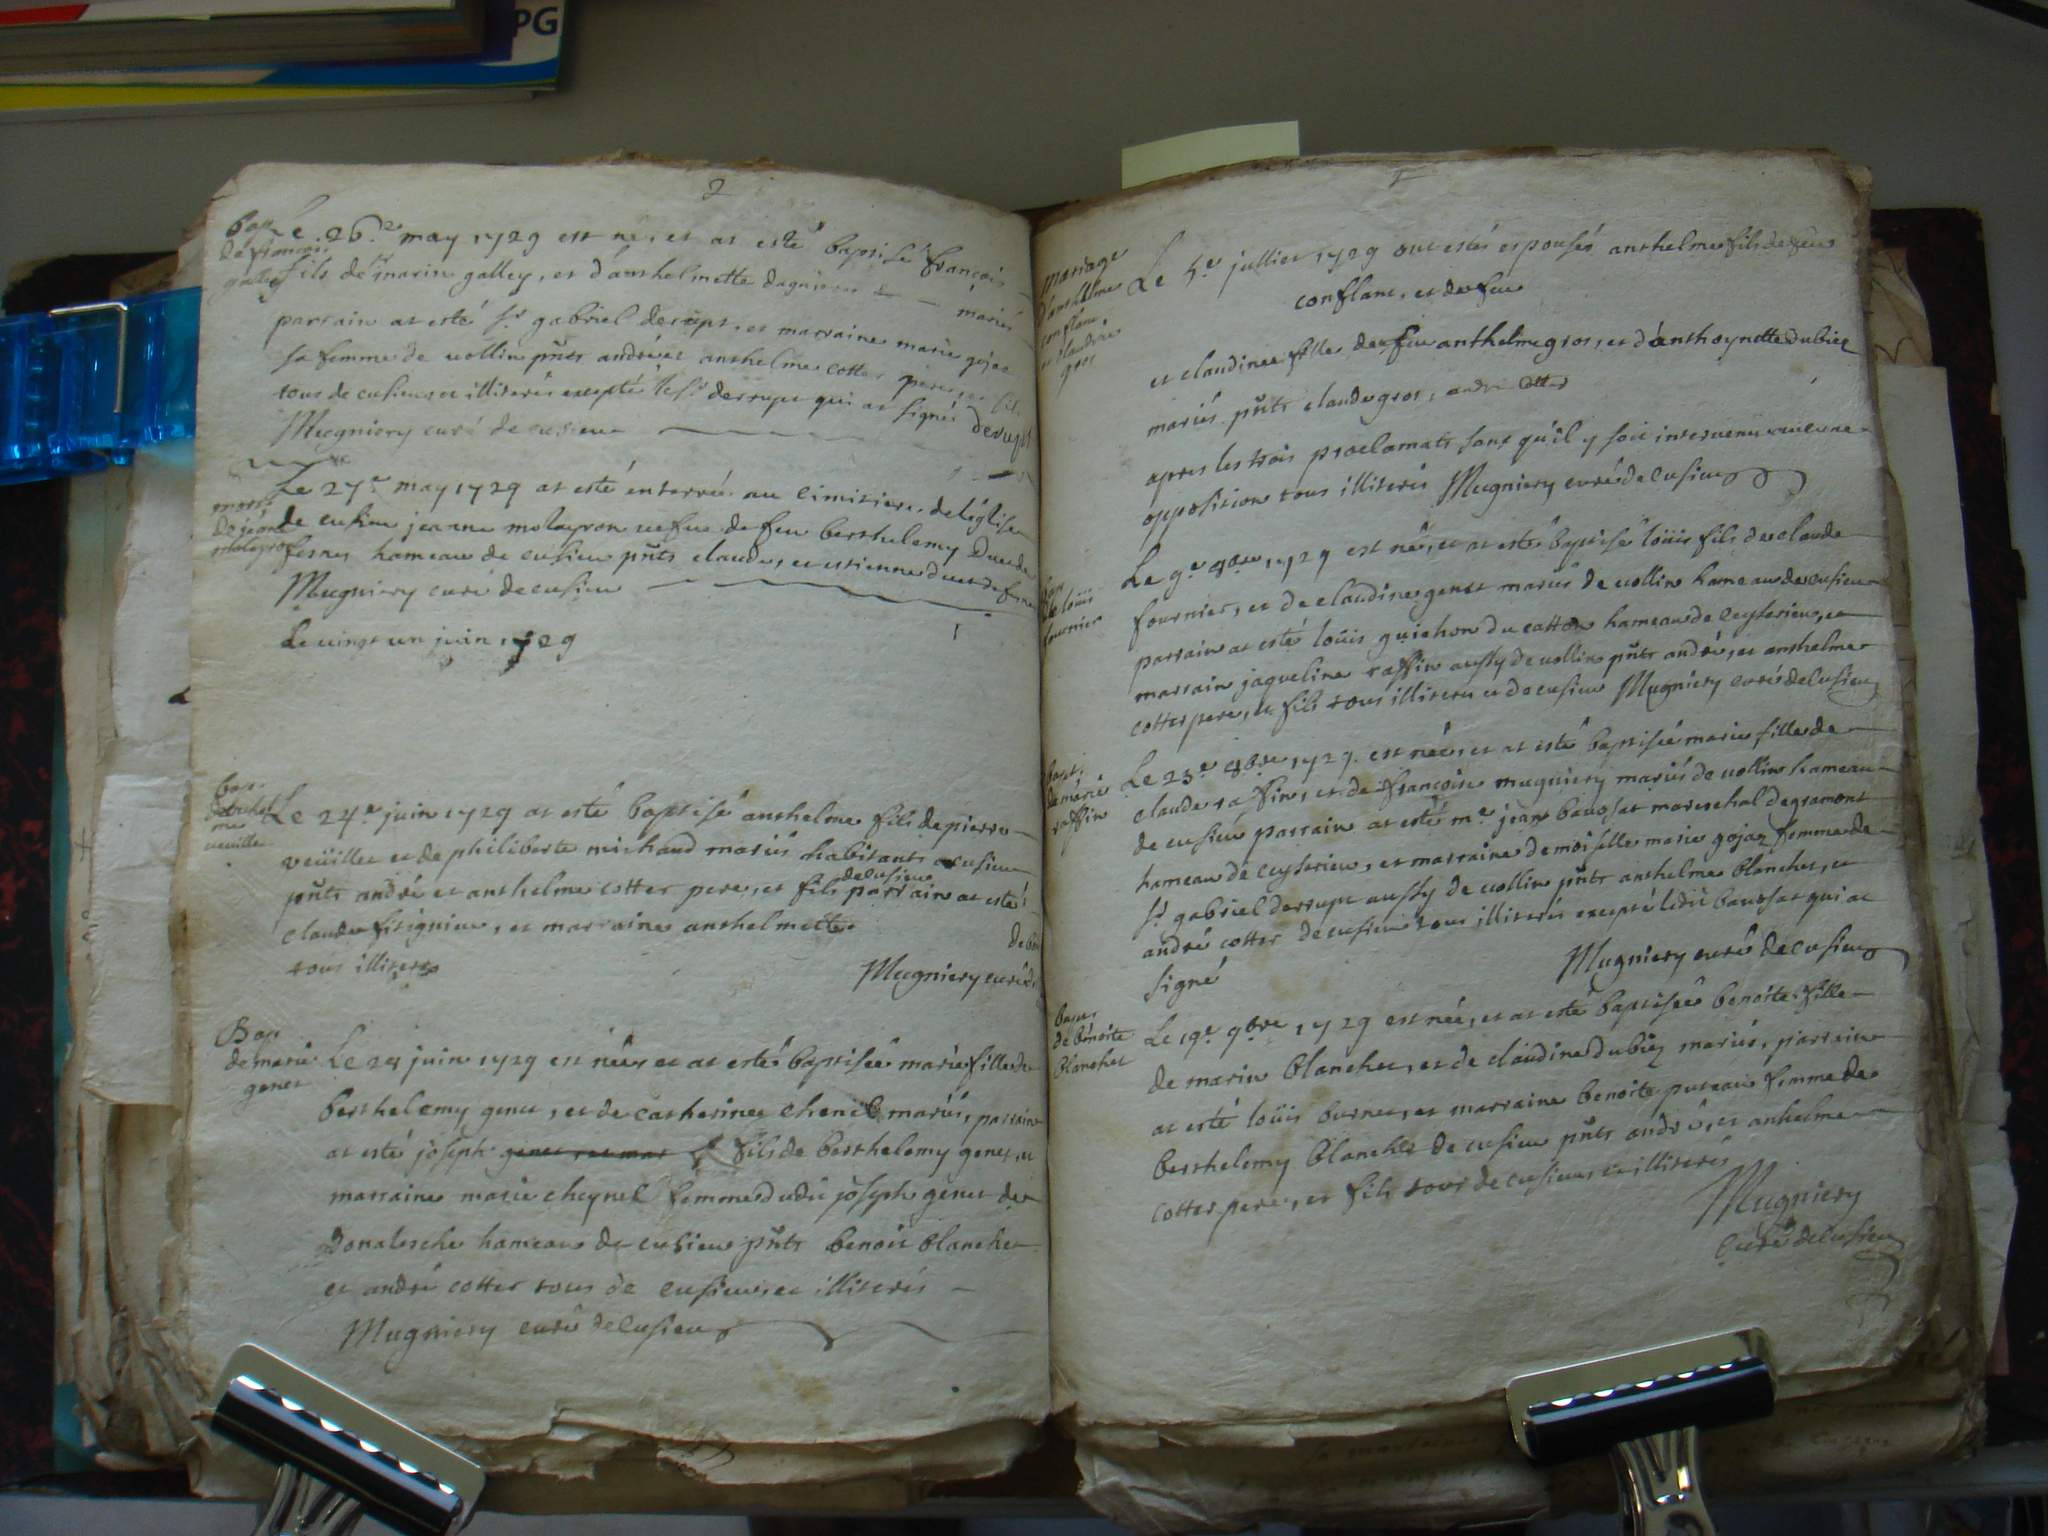 PG
2
bap
de francois
galley
Le 26.e may 1729 est né, et at esté baptisé francois
fils de marin galley, et d'anthelmette dagnieres mariés
parrain at esté sr gabriel derupt, et marraine marie gojac
sa femme de vollin pnts andré et anthelme cotter pere, et fils
tous de cusieu et illiterés excepté le sr derrupt qui at signé derupt
Mugniery curé de cusieu
mort
de jeanne
moleyron
Le 27.e may 1729 at esté enterrée au cimitiere de léglise
de cusieu jeanne moleyron vefve de feu berthelemy
hameau de cusieu pnts claude, et estienne
Mugniery curé de cusieu
Le vingt un juin 1729
bap
d'anthel
me
veuillet
Le 24.e juin 1729 at esté baptisé anthelme fils de pierre
veüillet et de philiberte michaud mariés habitants a cusieu
pnts andré et anthelme cotter pere, et fils de cusieu parrain at esté
claude fitignieu, et marraine anthelmette
tous illiterés
Mugniery curé de
Bap
de marie
genet
Le 24 juin 1729 est née, et at esté baptisée marie fille de
berthelemy genet, et de catherine chenel mariés, parrain
at esté joseph genet, et mar fils de berthelemy genet, et
marraine marie cheynel femme dudit joseph genet de
donalesche hameau de cusieu pnts benoit blanchet
et andré cotter tous de cusieu, et illiterés
Mugniery curé de cusieu
mariage
d'anthelme
conflanc
et claudine
gros
Le 5.e julliet 1729 ont estés espousés anthelme fils de feu
conflanc, et de feue
et claudine fille de feu anthelme gros, et d'anthoynette dubiez
mariés pnts claude gros, andre cotter
apres les trois proclamats sans qu'il y soit intervenu aucune
opposition tous illiterés Mugniery curé de cusieu
bap
de loüis
fournier
Le 9.e 8bre 1729 est né, et at esté baptisé loüis fils de claude
fournier, et de claudine genet mariés de vollin hameau de cusieu
parrain at esté loüis guichon du catton hameau de ceyserieu, et
marrain jaqueline raffin aussy de vollin pnts andré, et anthelme
cotter pere, et fils tous illiterés et de cusieu Mugniery curé de cusieu
bapt.
de marie
raffin
Le 23.e 8bre 1729 est née, et at esté baptisée marie fille de
claude raffin, et de francoise mugniery mariés de vollin hameau
de cusieu parrain at esté me jean baussat mareschal de gramont
hameau de ceyserieu, et marraine demoiselle marie gojaz femme de
sr gabriel derrupt aussy de vollin pnts anthelme blanchet, et
andré cotter de cusieu tous illiterés excepté ledit baussat qui at
signé
Mugniery curé de cusieu
bap.
de benoite
blanchet
Le 19.e 9bre 1729 est née, et at esté baptisée benoite fille
de marin blanchet, et de claudine dubiez mariés, parrain
at esté loüis burnet, et marraine benoite puteau femme de
berthelemy blanchet de cusieu pnts andré, et anthelme
cotter pere, et fils tous de cusieu, et illiterés
Mugniery
curé de cusieu